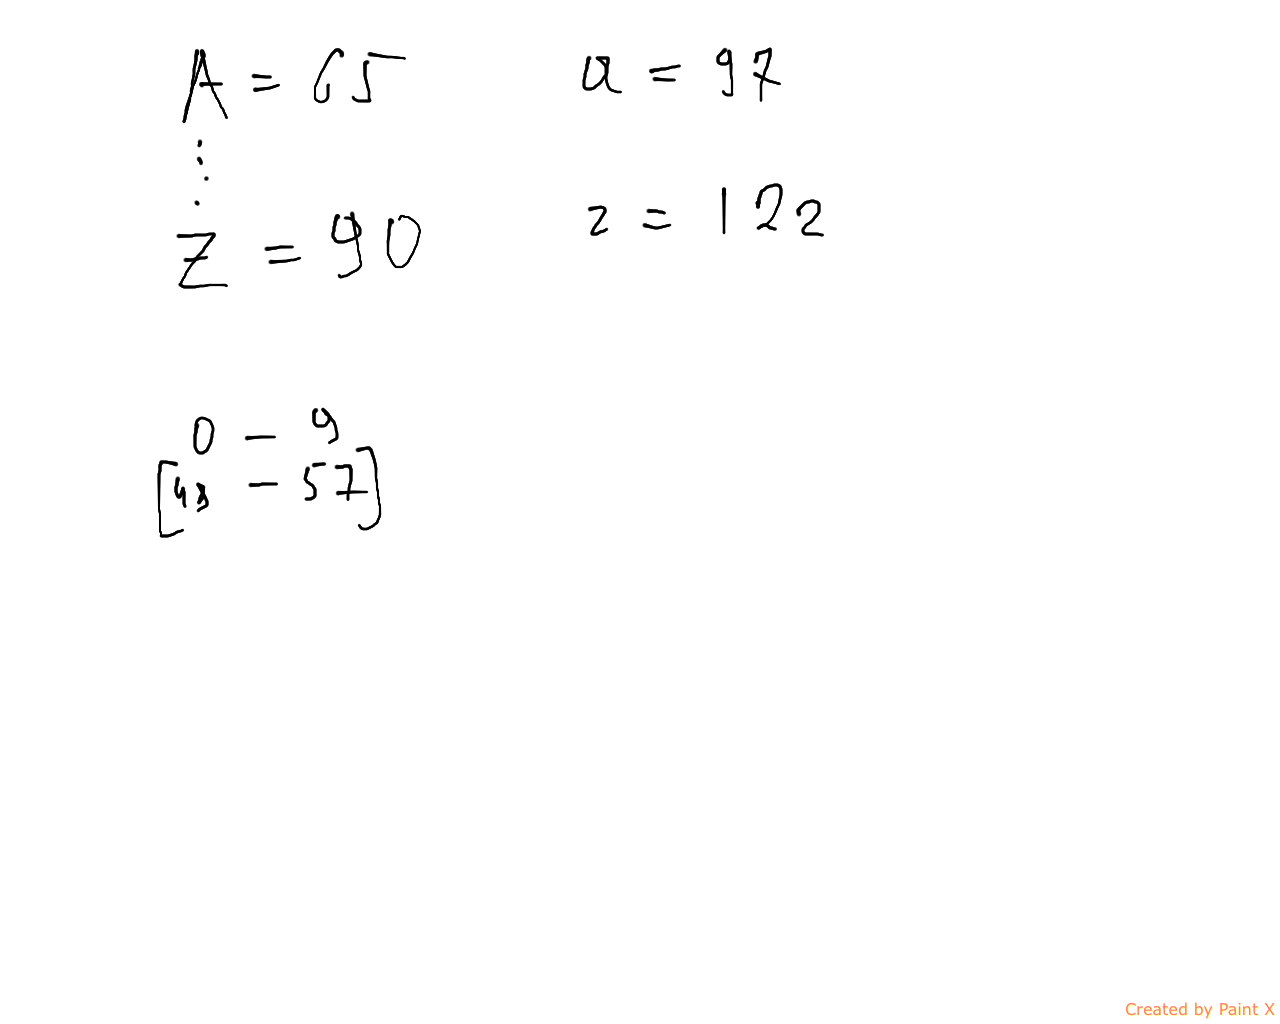 A = 65
a = 97
⋮
Z = 90
z = 122
0 - 9
[48 - 57]
Created by Paint X